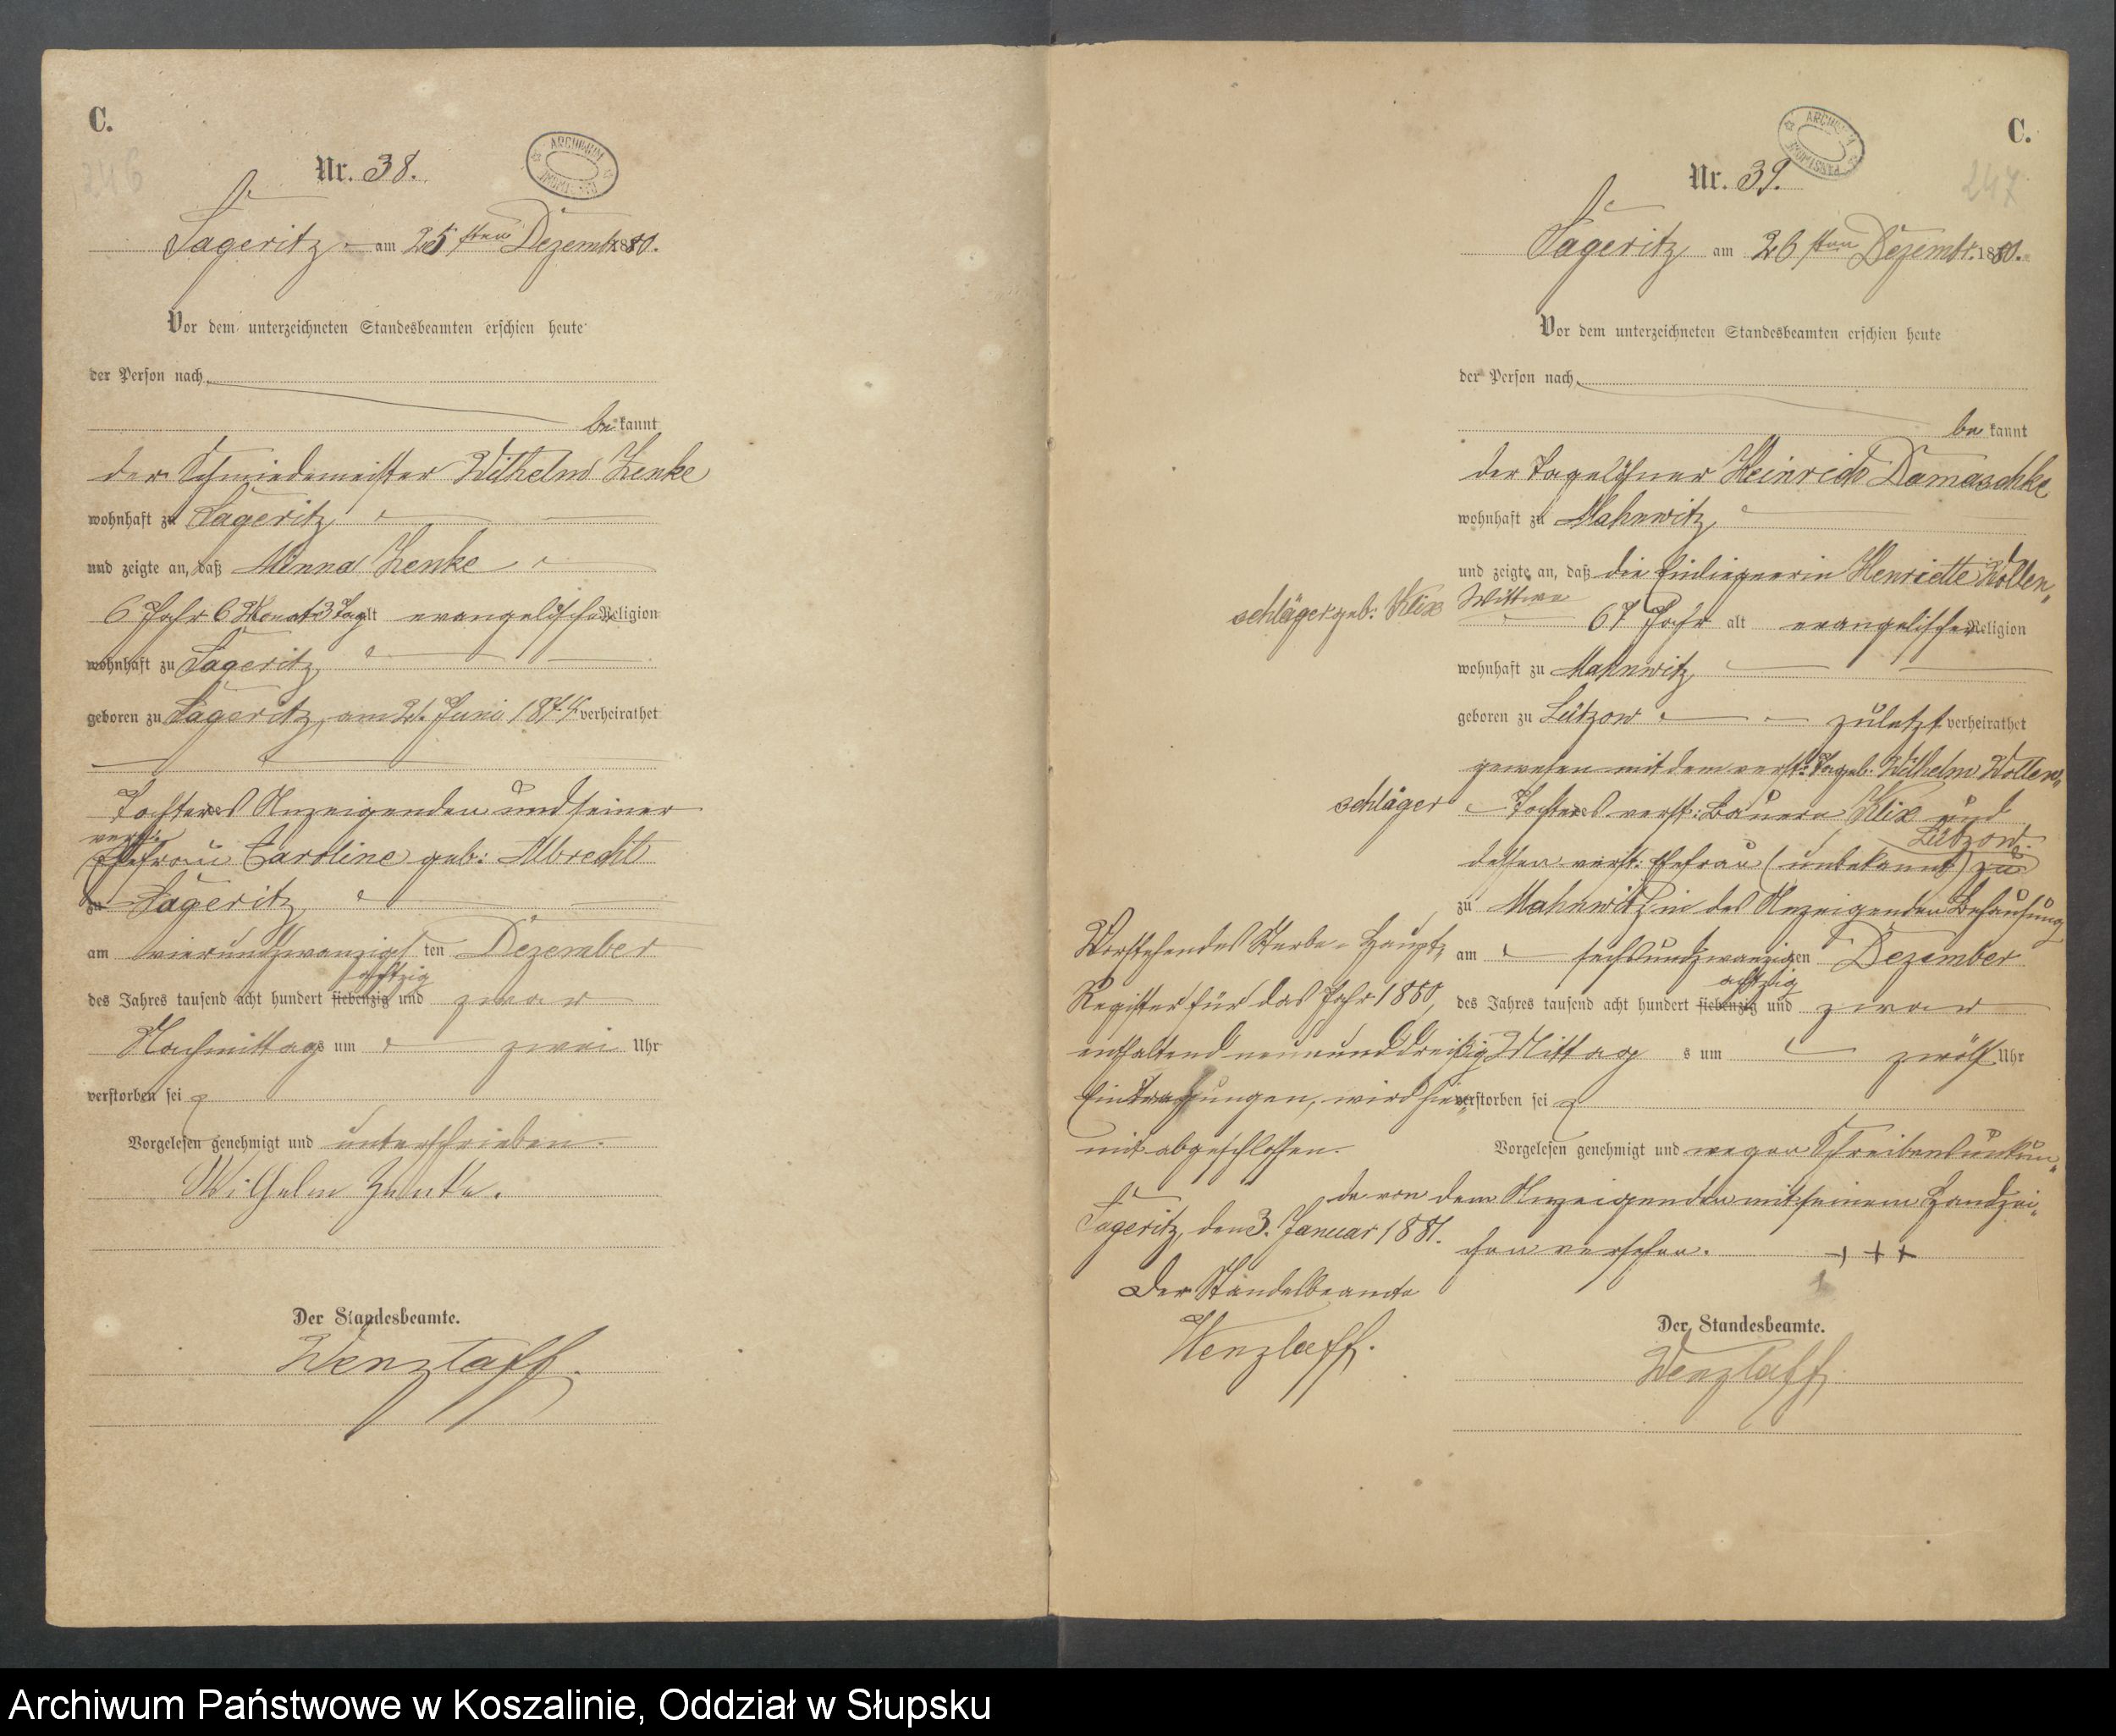 C.
246
Nr. 38.
ARCHIWUM
Sageritz am 25 sten Dezembr. 1880.
Vor dem unterzeichneten Standesbeamten erschien heute
der Person nach
be kannt
der Schmiedemeister Wilhelm Henke
wohnhaft zu Sageritz
und zeigte an, daß Minna Henke
6 Jahr 6 Monat 3 Tag alt evangelischer Religion
wohnhaft zu Sageritz
geboren zu Sageritz, am 21. Juni 1874 verheirathet
Tochter des Anzeigenden und seiner
verst:
Ehefrau Caroline geb: Albrecht
zu Sageritz
am vierundzwanzigs ten Dezember
achtzig
des Jahres tausend acht hundert siebenzig und zwar
Nachmittags um zwei Uhr
verstorben sei
Vorgelesen genehmigt und unterschrieben.
Wilhelm Henke.
Der Standesbeamte.
Wenzlaff.
C.
247
Nr. 39.
ARCHIWUM PAŃSTWOWE
Sageritz am 26 sten Dezembr. 1880.
Vor dem unterzeichneten Standesbeamten erschien heute
der Person nach
be kannt
der Tagelöhner Heinrich Damaschke
wohnhaft zu Mahnwitz
und zeigte an, daß die Einliegerin Henriette Wollen„
schläger geb: Klix Wittwe
67 Jahr alt evangelischer Religion
wohnhaft zu Mahnwitz
geboren zu Lützow zuletzt verheirathet
gewesen mit dem verst: Tagel. Wilhelm Wollen„
schläger Tochter des verst: Bauern Klix und
Lützow.
dessen verst: Ehefrau (unbekannt) zu
zu Mahnwitz in des Anzeigenden Behausung
am sechsundzwanzigsten Dezember
achtzig
des Jahres tausend acht hundert siebenzig und zwar
Mittag s um zwölf Uhr
verstorben sei
Vorgelesen genehmigt und wegen Schreibensunkun„
de von dem Anzeigenden mit seinem Handzei„
chen versehen. + + +
Der Standesbeamte.
Wenzlaff.
Vorstehendes Sterbe-Haupt„
Register für das Jahr 1880,
enthaltend neununddreißig
Eintragungen, wird hier„
mit abgeschlossen.
Sageritz, den 3. Januar 1881.
Der Standesbeamte
Wenzlaff.
Archiwum Państwowe w Koszalinie, Oddział w Słupsku